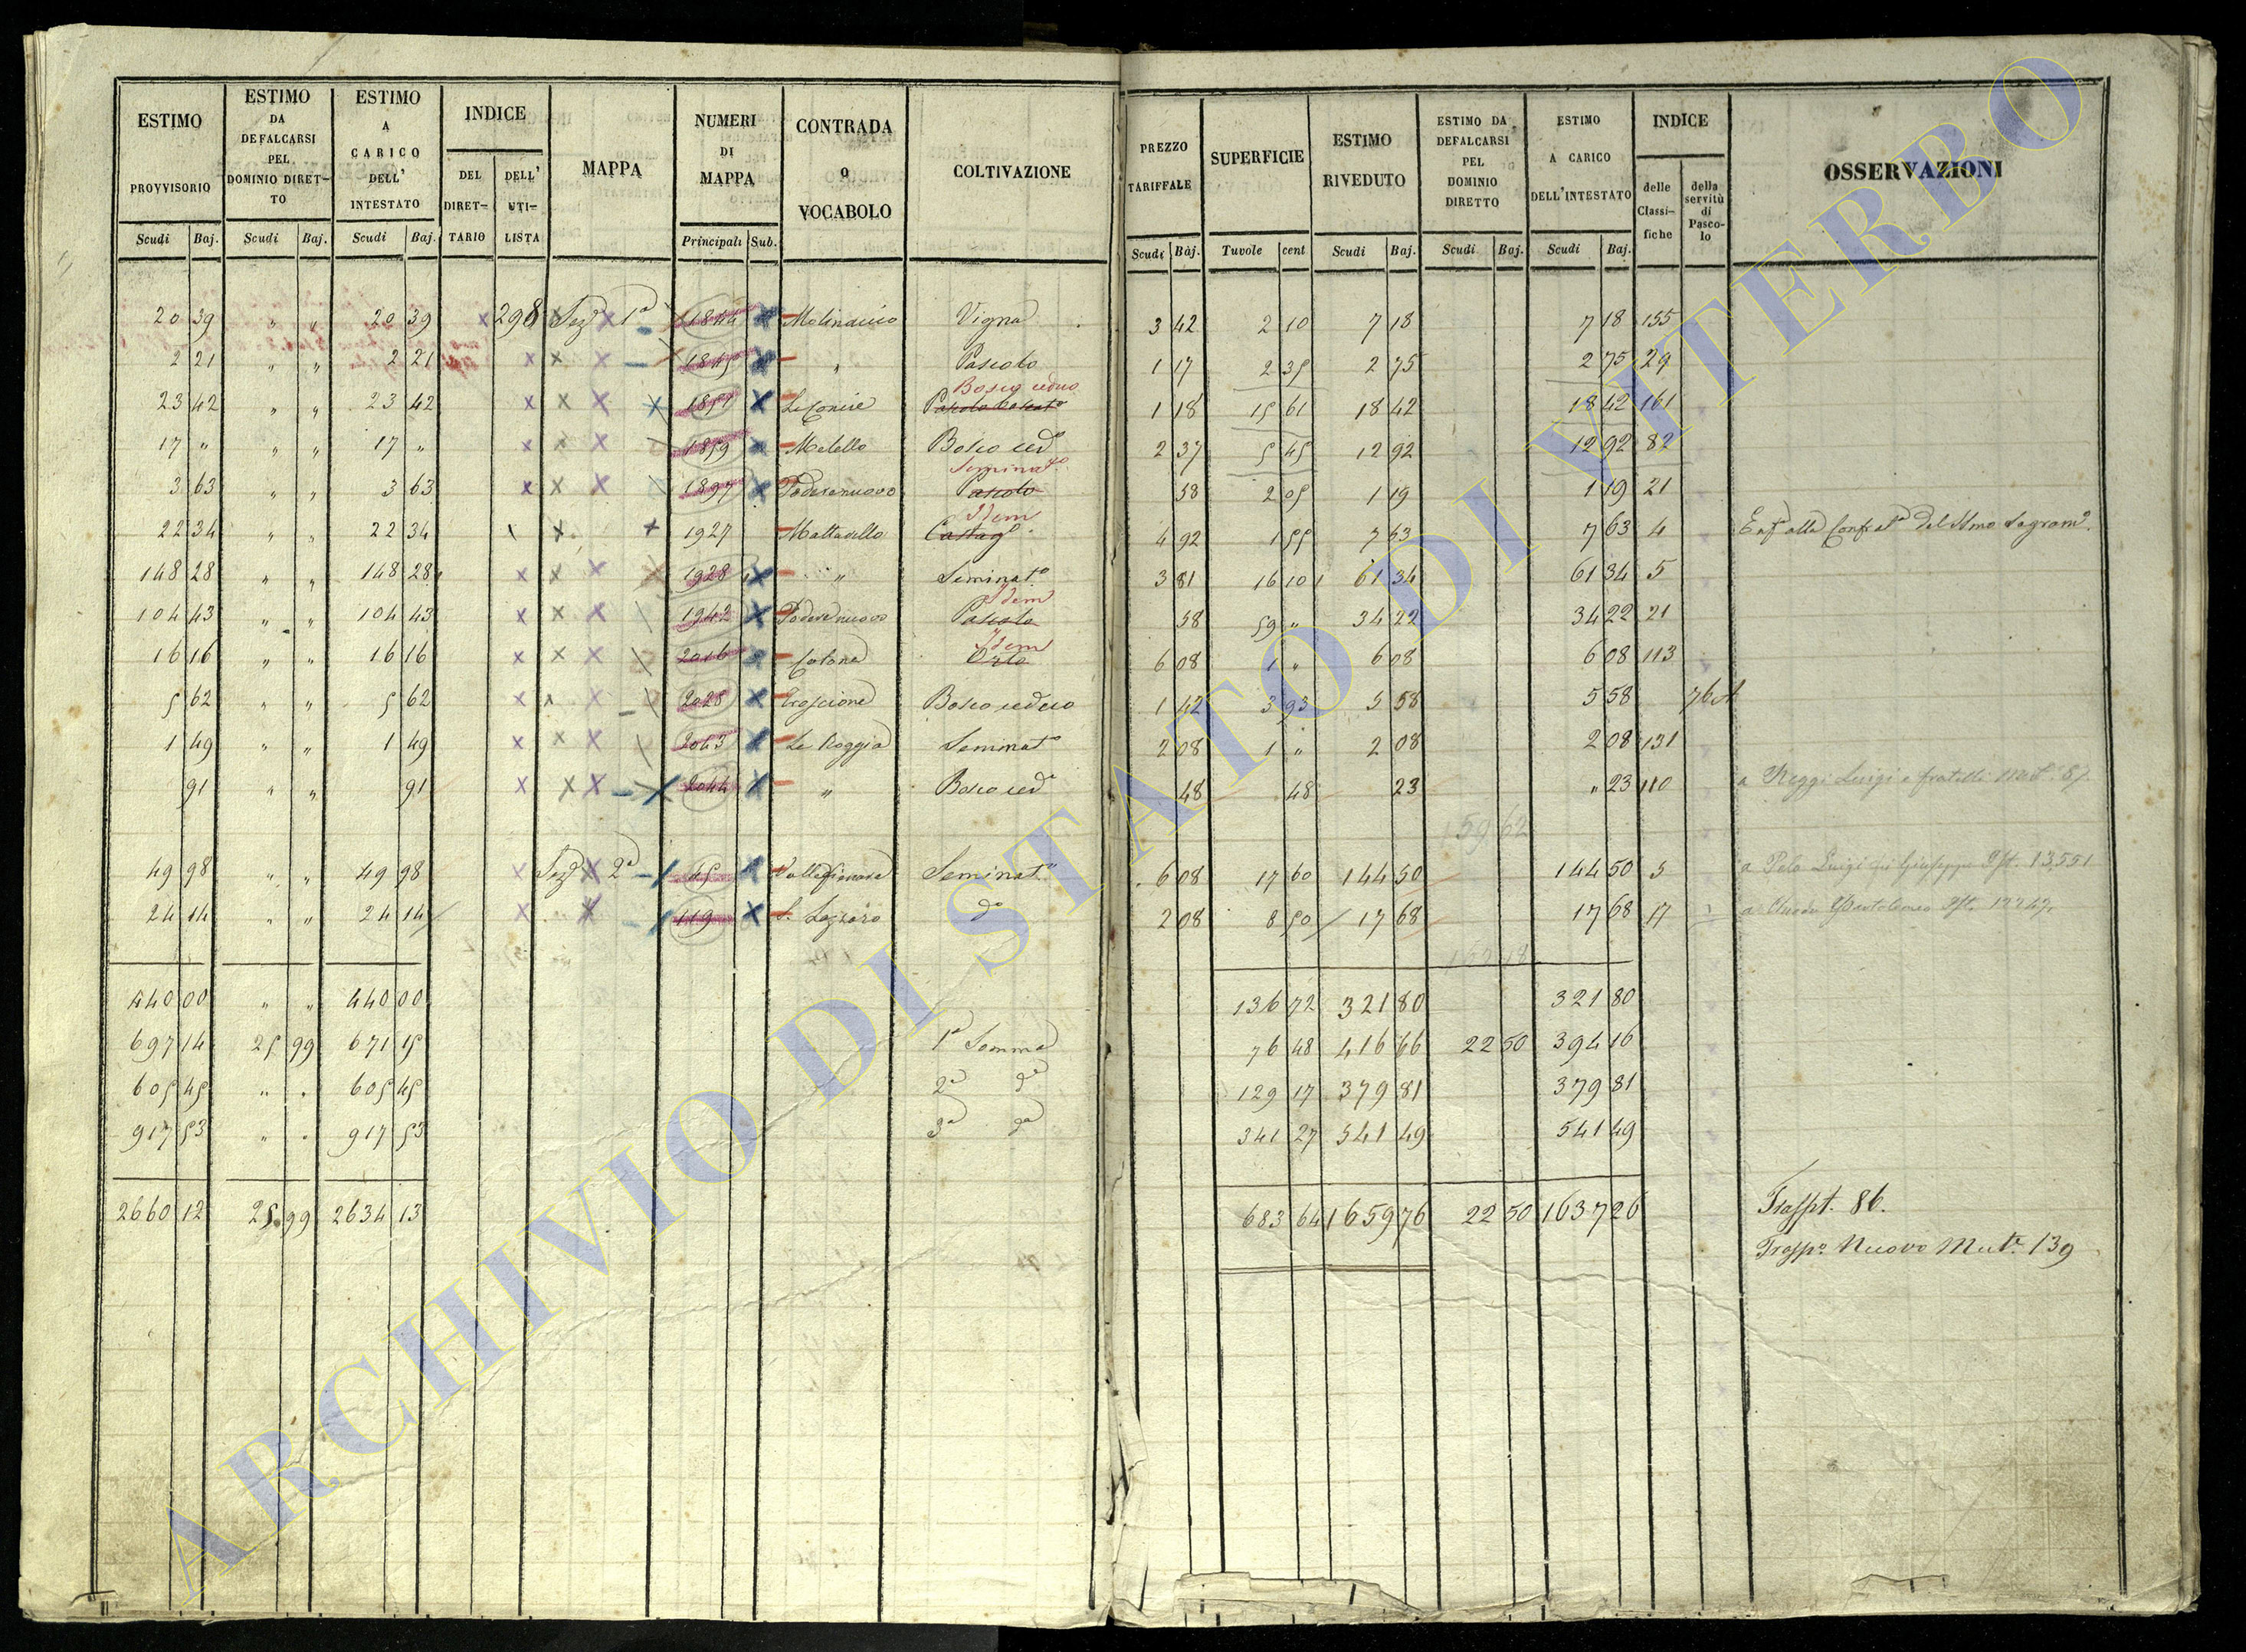 ESTIMO PROVVISORIO Scudi Baj. | ESTIMO DA DEFALCARSI PEL DOMINIO DIRETTO Scudi Baj. | ESTIMO A CARICO DELL' INTESTATO Scudi Baj. | INDICE DEL DIRETTARIO | DELL' UTILISTA | MAPPA | NUMERI DI MAPPA Principali Sub. | CONTRADA o VOCABOLO | COLTIVAZIONE | PREZZO TARIFFALE Scudi Baj. | SUPERFICIE Tuvole cent | ESTIMO RIVEDUTO Scudi Baj. | ESTIMO DA DEFALCARSI PEL DOMINIO DIRETTO Scudi Baj. | ESTIMO A CARICO DELL'INTESTATO Scudi Baj. | INDICE delle Classifiche | della servitù di Pascolo | OSSERVAZIONI
20 39 " " 20 39 298 Sezᵉ 1ª 1844 Molinaccio Vigna 3 42 2 10 7 18 7 18 155
2 21 " " 2 21 1845 " Pascolo 1 17 2 35 2 75 2 75 29
Bosco ceduo
23 42 " " 23 42 1851 Le Conce 1 18 15 61 18 42 18 42 161
17 " " " 17 " 1859 Melello Bosco cedᵒ 2 37 5 45 12 92 12 92 82
Seminatᵒ
3 63 " " 3 63 1897 Poderenuovo Pascolo 58 2 05 1 19 1 19 21
Idem
22 34 " " 22 34 1927 Mattatello Castagᵒ 4 92 1 55 7 63 7 63 4
148 28 " " 148 28 1928 " Seminatᵒ 3 81 16 10 61 34 61 34 5
Idem
104 43 " " 104 43 1942 Poderenuovo Pascolo 58 59 " 34 22 34 22 21
Idem
16 16 " " 16 16 2016 Colona Orto 6 08 1 " 6 08 6 08 113
5 62 " " 5 62 2028 Troscione Bosco ceduo 1 42 3 93 5 58 5 58 76
1 49 " " 1 49 2043 La Roggia Seminatᵒ 2 08 1 " 2 08 2 08 131
91 " " 91 2044 " Bosco cedᵒ 48 48 23 " 23 110 a Reggi Luigi e fratelli 87
159 62
49 98 " " 49 98 Sezᵉ 2ª 45 Seminatᵒ 6 08 17 60 144 50 144 50 5 a Polo Luigi fu Giuseppe 13,551
24 14 " " 24 14 119 S. Lazzaro dᵒ 2 08 8 50 17 68 17 68 17
162 18
440 00 " " 440 00 136 72 321 80 321 80
697 14 25 99 671 15 1ª Somma 76 48 416 66 22 50 394 16
605 45 " " 605 45 2ª dª 129 17 379 81 379 81
917 53 " " 917 53 3ª dª 341 27 541 49 541 49
2660 12 25 99 2634 13 683 64 1659 76 22 50 1637 26 Trasspt. 86.
Trasspᵒ Nuovo Mutᵉ 139
ARCHIVIO DI STATO DI VITERBO